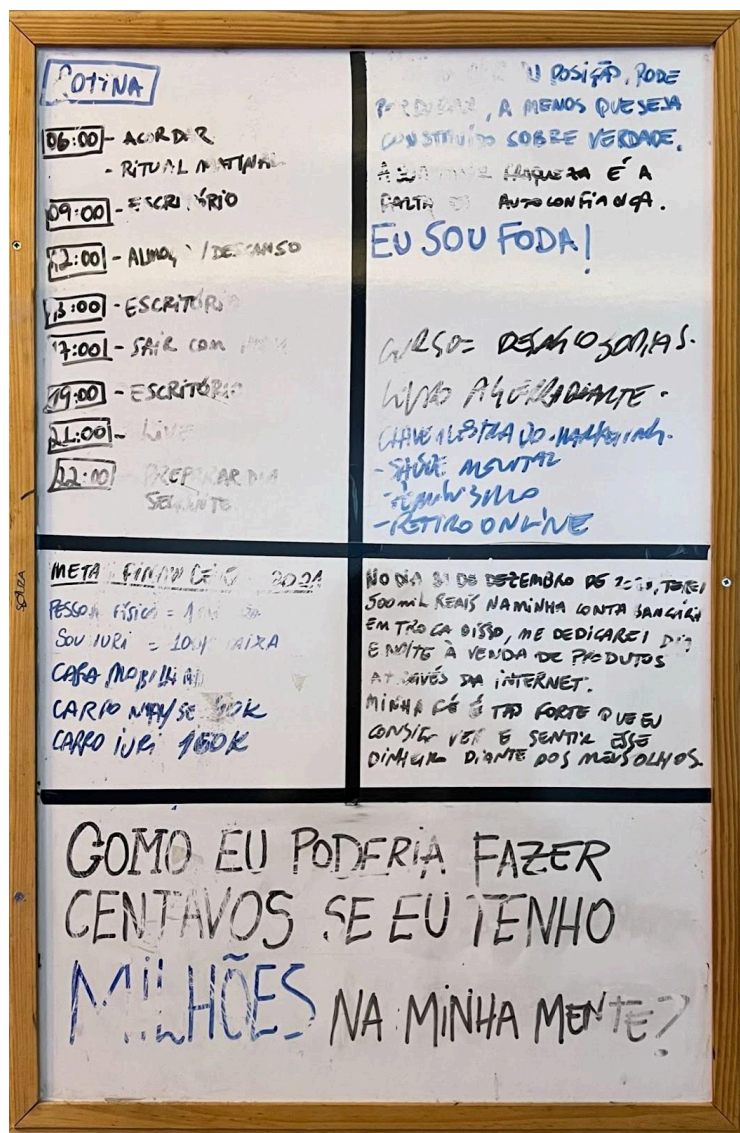 ROTINA
06:00 - ACORDAR
- RITUAL MATINAL
09:00 - ESCRITÓRIO
12:00 - ALMOÇO / DESCANSO
13:00 - ESCRITÓRIO
17:00 - SAIR COM
19:00 - ESCRITÓRIO
21:00 - LIVE
22:00 - PREPARAR DIA
SEGUINTE
POSIÇÃO, PODE
PERDURAR, A MENOS QUE SEJA
CONSTRUÍDO SOBRE VERDADE.
A FRAQUEZA É A
FALTA DE AUTOCONFIANÇA.
EU SOU FODA!
CURSO =
LIVRO
CHAVE MESTRA DO MARKETING.
- SAÚDE MENTAL
-
- RETIRO ONLINE
META FINANCEIRA 2021
PESSOA FÍSICA =
SOU IURI = CAIXA
CASA MOBILIADA
CARRO
CARRO IURI 160K
NO DIA 31 DE DEZEMBRO DE TEREI
500 MIL REAIS NA MINHA CONTA BANCÁRIA
EM TROCA DISSO, ME DEDICAREI DIA
E NOITE À VENDA DE PRODUTOS
ATRAVÉS DA INTERNET.
MINHA FÉ É TÃO FORTE QUE EU
CONSIGO VER E SENTIR ESSE
DINHEIRO DIANTE DOS MEUS OLHOS.
COMO EU PODERIA FAZER
CENTAVOS SE EU TENHO
MILHÕES NA MINHA MENTE?
SOUZA